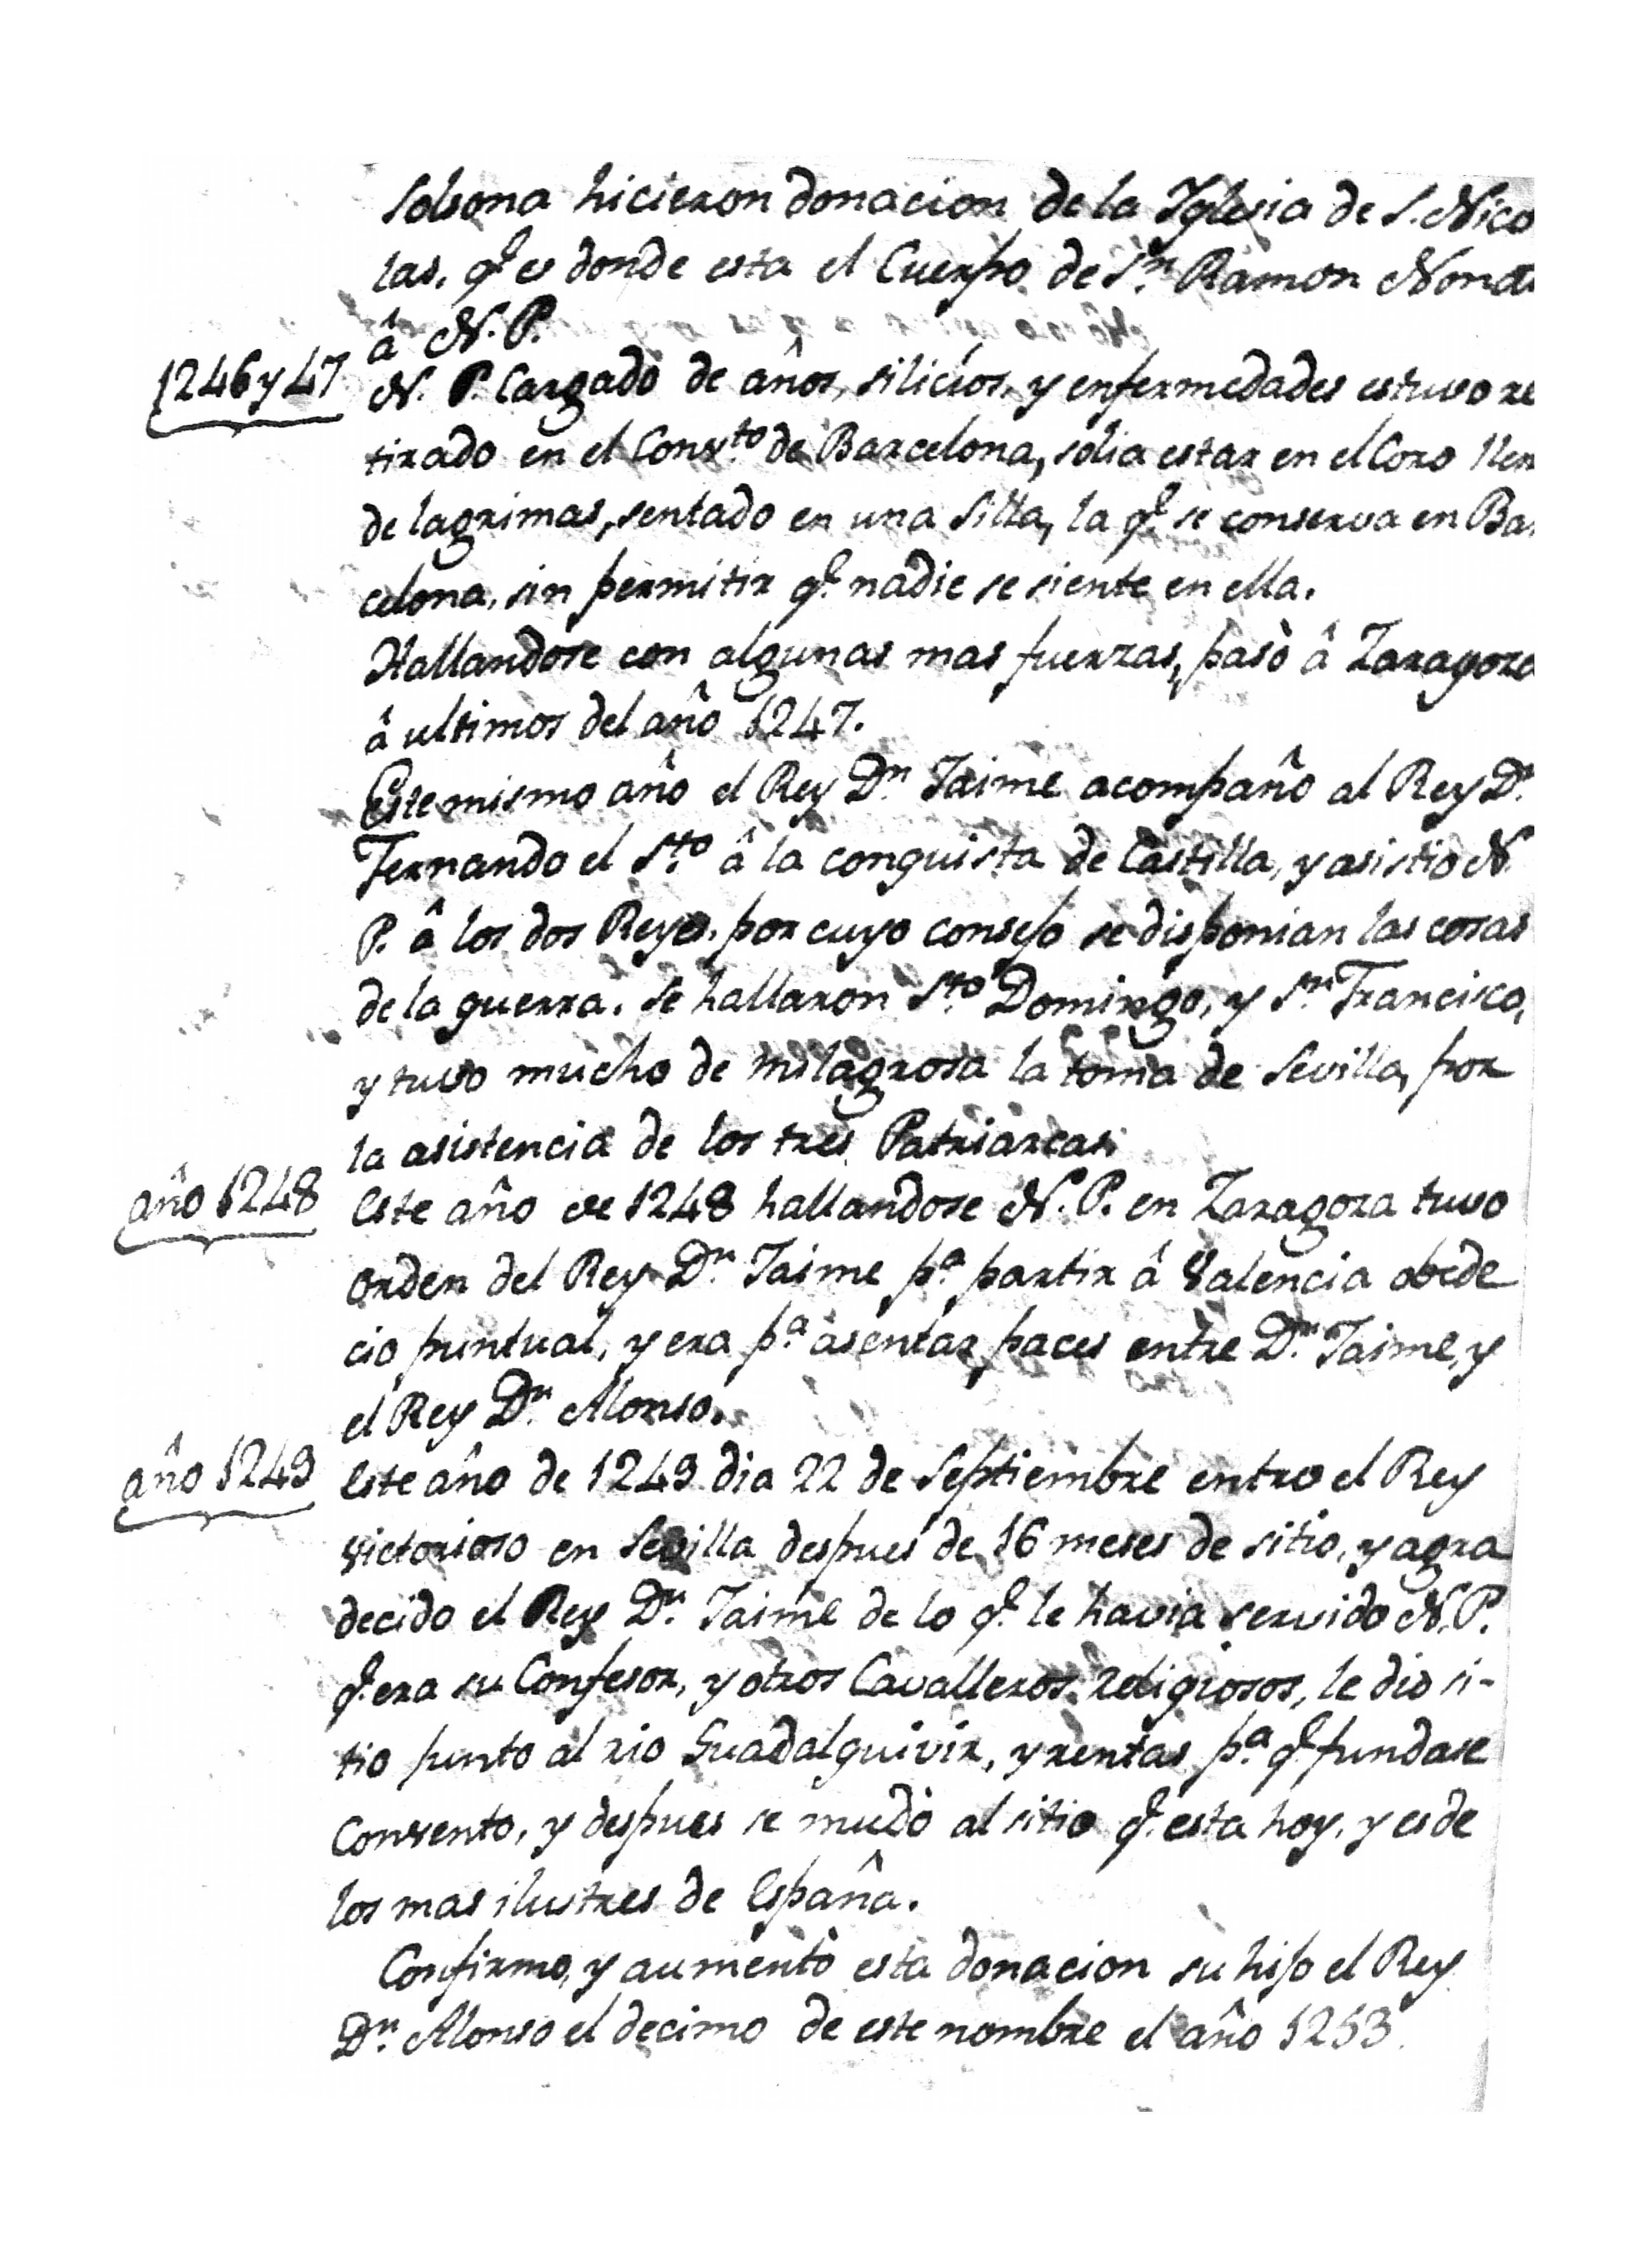 Solsona hicieron donacion de la Iglesia de S. Nico
las, q.e es donde esta el Cuerpo de S.n Ramon Nona
â N. P.
1246 y 47
N. P. Cargado de años, silicios, y enfermedades estuvo re
tirado en el Conv.to de Barcelona, solia estar en el Coro llen
de lagrimas, sentado en una Silla, la q.e se conserva en Bar
celona, sin permitir q.e nadie se siente en ella.
Hallandose con algunas mas fuerzas, pasò â Zaragoza
â ultimos del año 1247.
Este mismo año el Rey D.n Jaime acompaño al Rey D.n
Fernando el S.to â la conquista de Castilla, y asistio N.
P. â los dos Reyes, por cuyo consejo se disponian las cosas
de la guerra. Se hallaron S.to Domingo, y S.n Francisco,
y tuvo mucho de milagrosa la toma de Sevilla, por
la asistencia de los tres Patriarcas.
año 1248
Este año de 1248 hallandose N. P. en Zaragoza tuvo
orden del Rey D.n Jaime p.a partir â Valencia obede
cio puntual, y era p.a asentar paces entre D.n Jaime, y
el Rey D.n Alonso.
año 1249
Este año de 1249 dia 22 de Septiembre entro el Rey
victorioso en Sevilla despues de 16 meses de sitio, y agra
decido el Rey D.n Jaime de lo q.e le havia servido N. P.
q.e era su Confesor, y otros Cavalleros religiosos, le dio si-
tio junto al rio Guadalquivir, y rentas p.a q.e fundase
Convento, y despues se mudò al sitio q.e esta hoy, y es de
los mas ilustres de España.
Confirmo, y aumentò esta donacion su hijo el Rey
D.n Alonso el decimo de este nombre el año 1253.